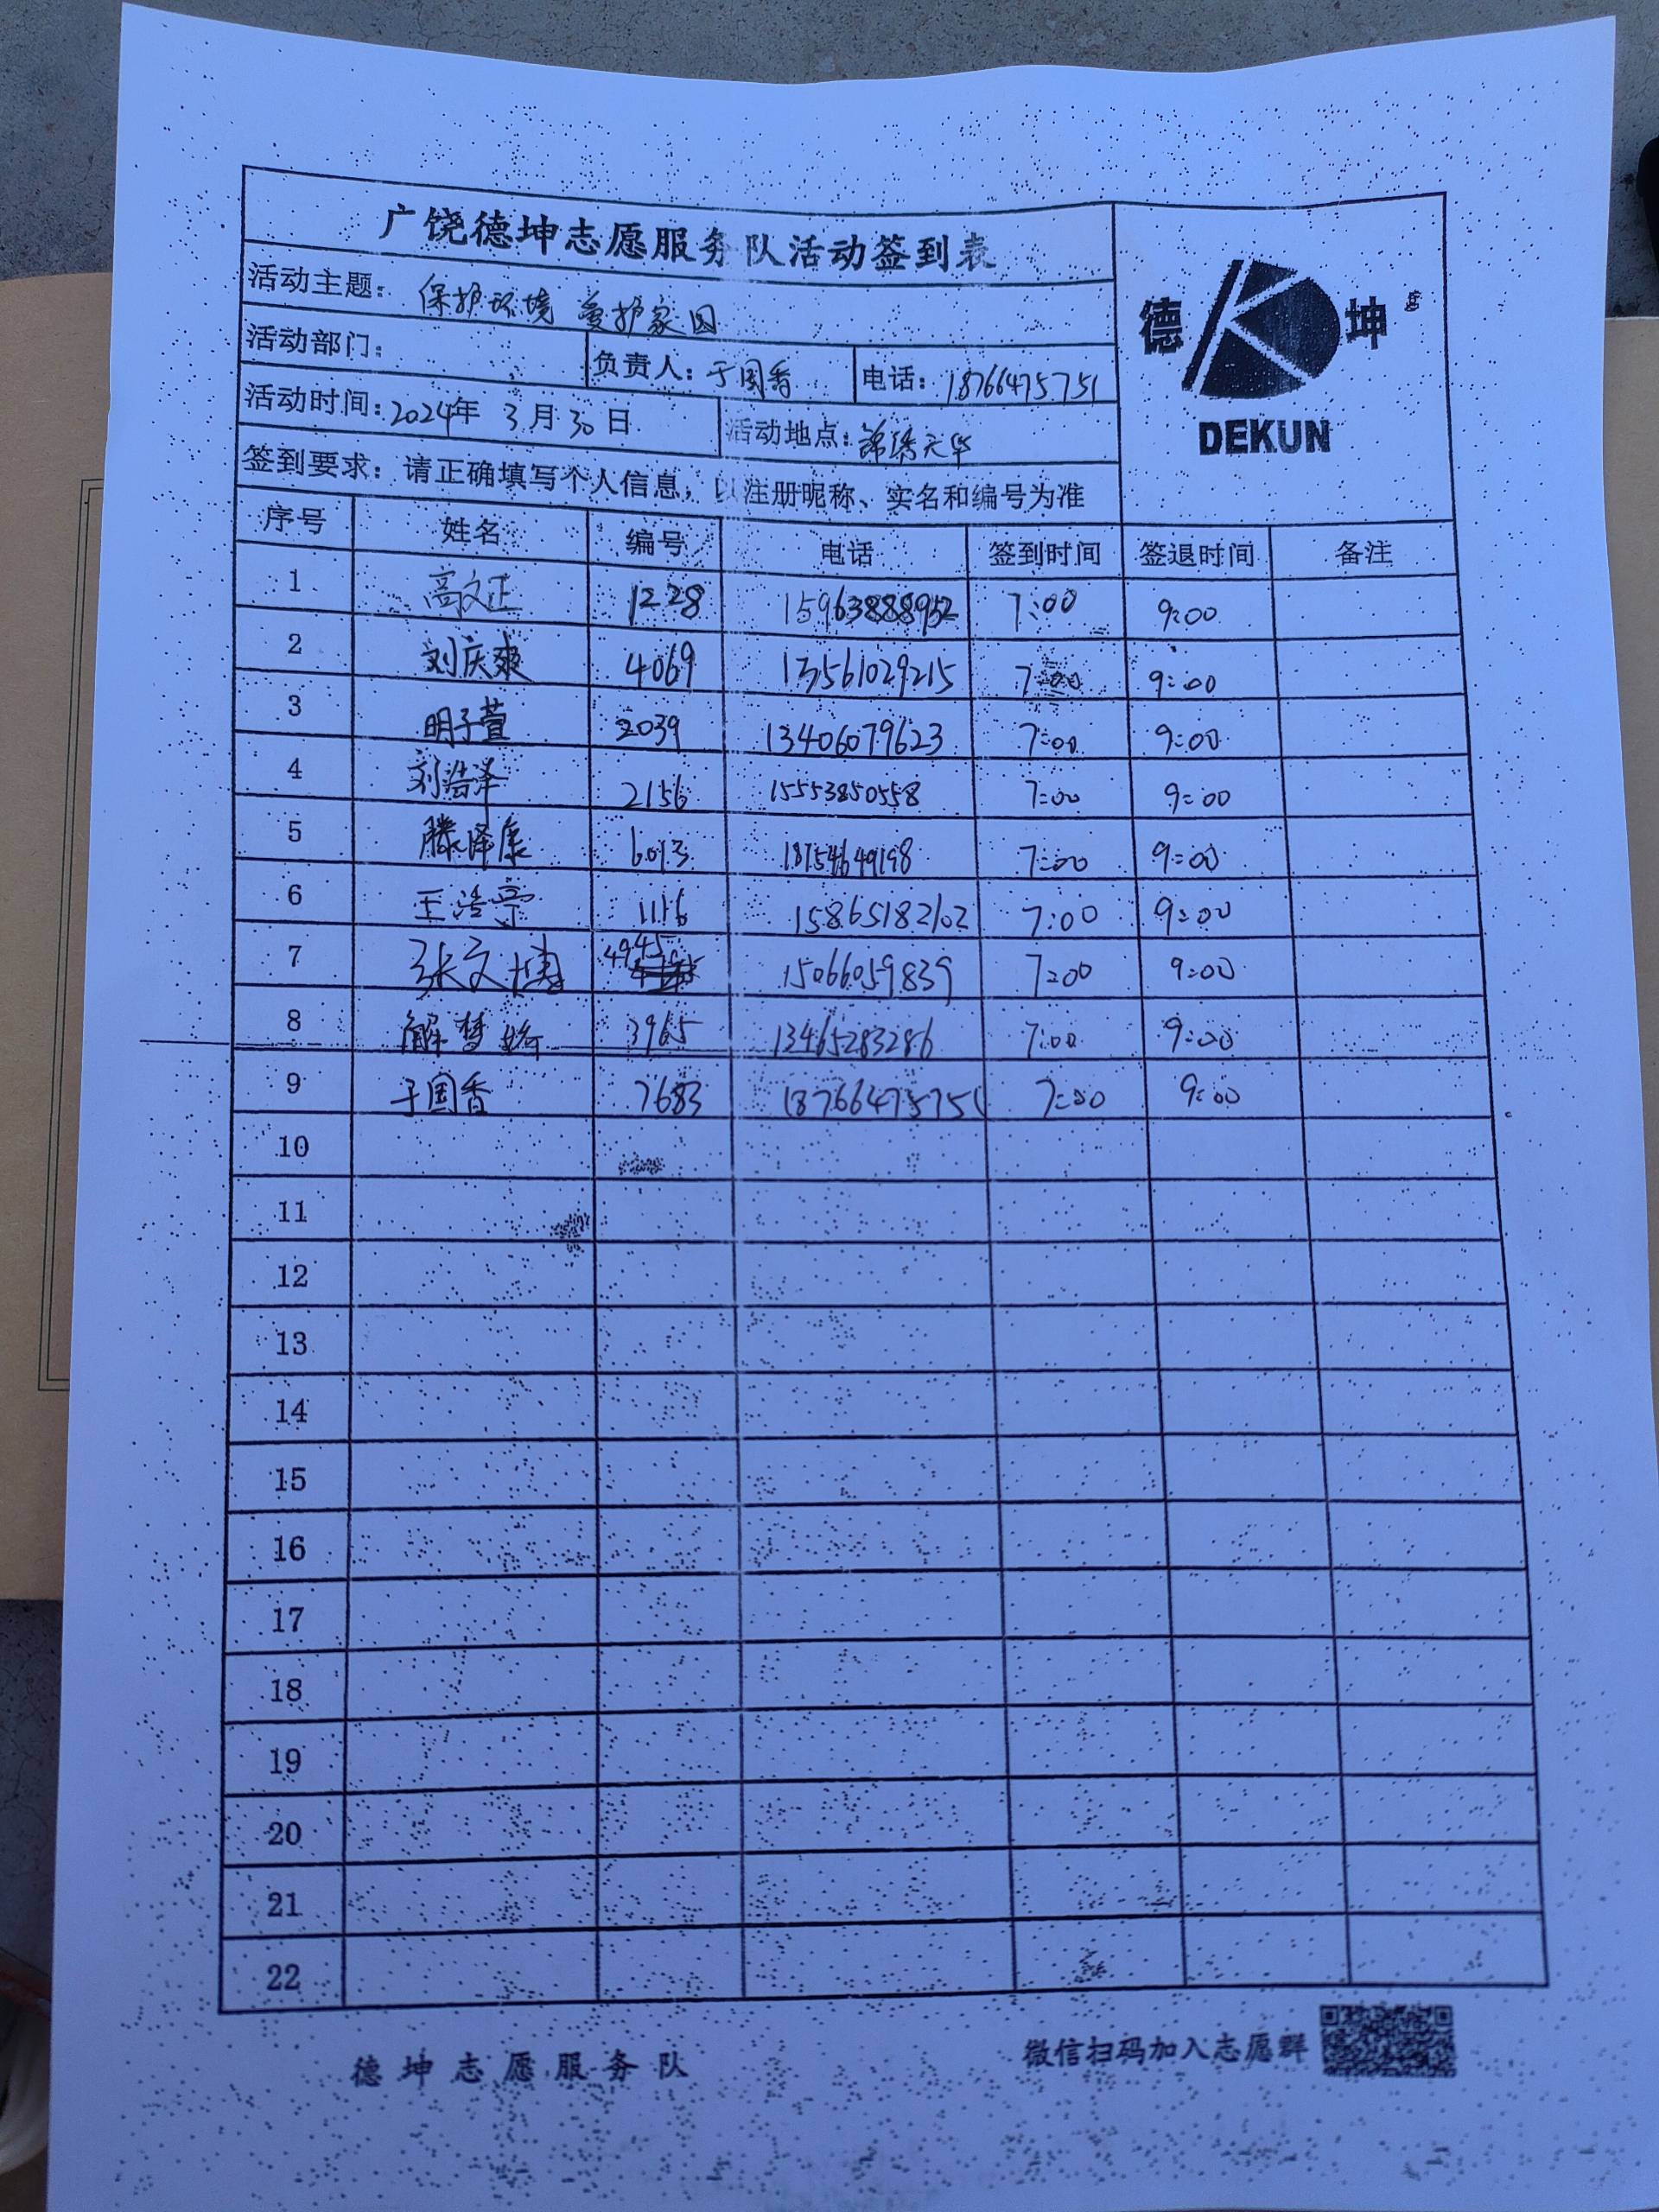 广饶德坤志愿服务队活动签到表
德 坤
DEKUN
活动主题： 保护环境 爱护家园
活动部门： 负责人：于国香 电话：18766475751
活动时间：2024年 3月30日 活动地点：锦绣天华
签到要求：请正确填写个人信息，以注册昵称、实名和编号为准
序号 姓名 编号 电话 签到时间 签退时间 备注
1 高文正 1228 15963888952 7:00 9:00
2 刘庆爽 4069 13561029215 7:00 9:00
3 明子萱 2039 13406079623 7:00 9:00
4 刘浩泽 2156 15553850558 7:00 9:00
5 滕泽康 6073 18754649198 7:00 9:00
6 王浩 1116 15865182102 7:00 9:00
7 张文博 4945 15066059839 7:00 9:00
8 解梦娇 3965 13465283286 7:00 9:00
9 于国香 7683 18766475751 7:00 9:00
10
11
12
13
14
15
16
17
18
19
20
21
22
德坤志愿服务队 微信扫码加入志愿群